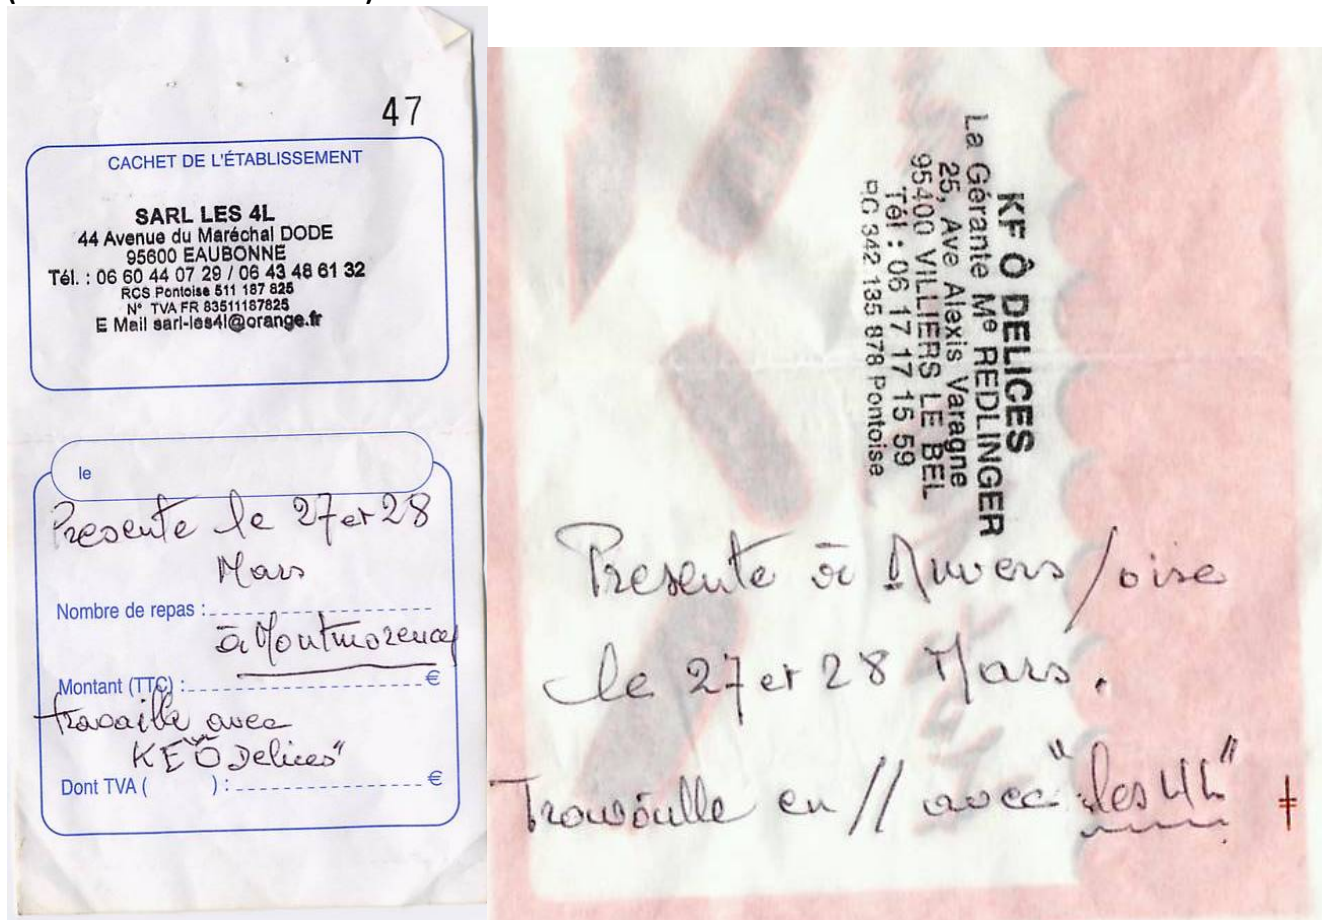 47
CACHET DE L'ÉTABLISSEMENT
SARL LES 4L
44 Avenue du Maréchal DODE
95600 EAUBONNE
Tél. : 06 60 44 07 29 / 06 43 48 61 32
RCS Pontoise 511 187 825
N° TVA FR 83511187825
E Mail sarl-les4l@orange.fr
le
Presente le 27 et 28
Mars
Nombre de repas :
à Montmorency
Montant (TTC) : €
travaille avec
KF Ô Delices"
Dont TVA ( ) : €
KF Ô DELICES
La Gérante Me REDLINGER
25, Ave Alexis Varagne
95400 VILLIERS LE BEL
Tél : 06 17 17 15 59
RC 342 135 878 Pontoise
Presente à Auvers / oise
le 27 et 28 Mars.
Travaille en // avec "les 4L"